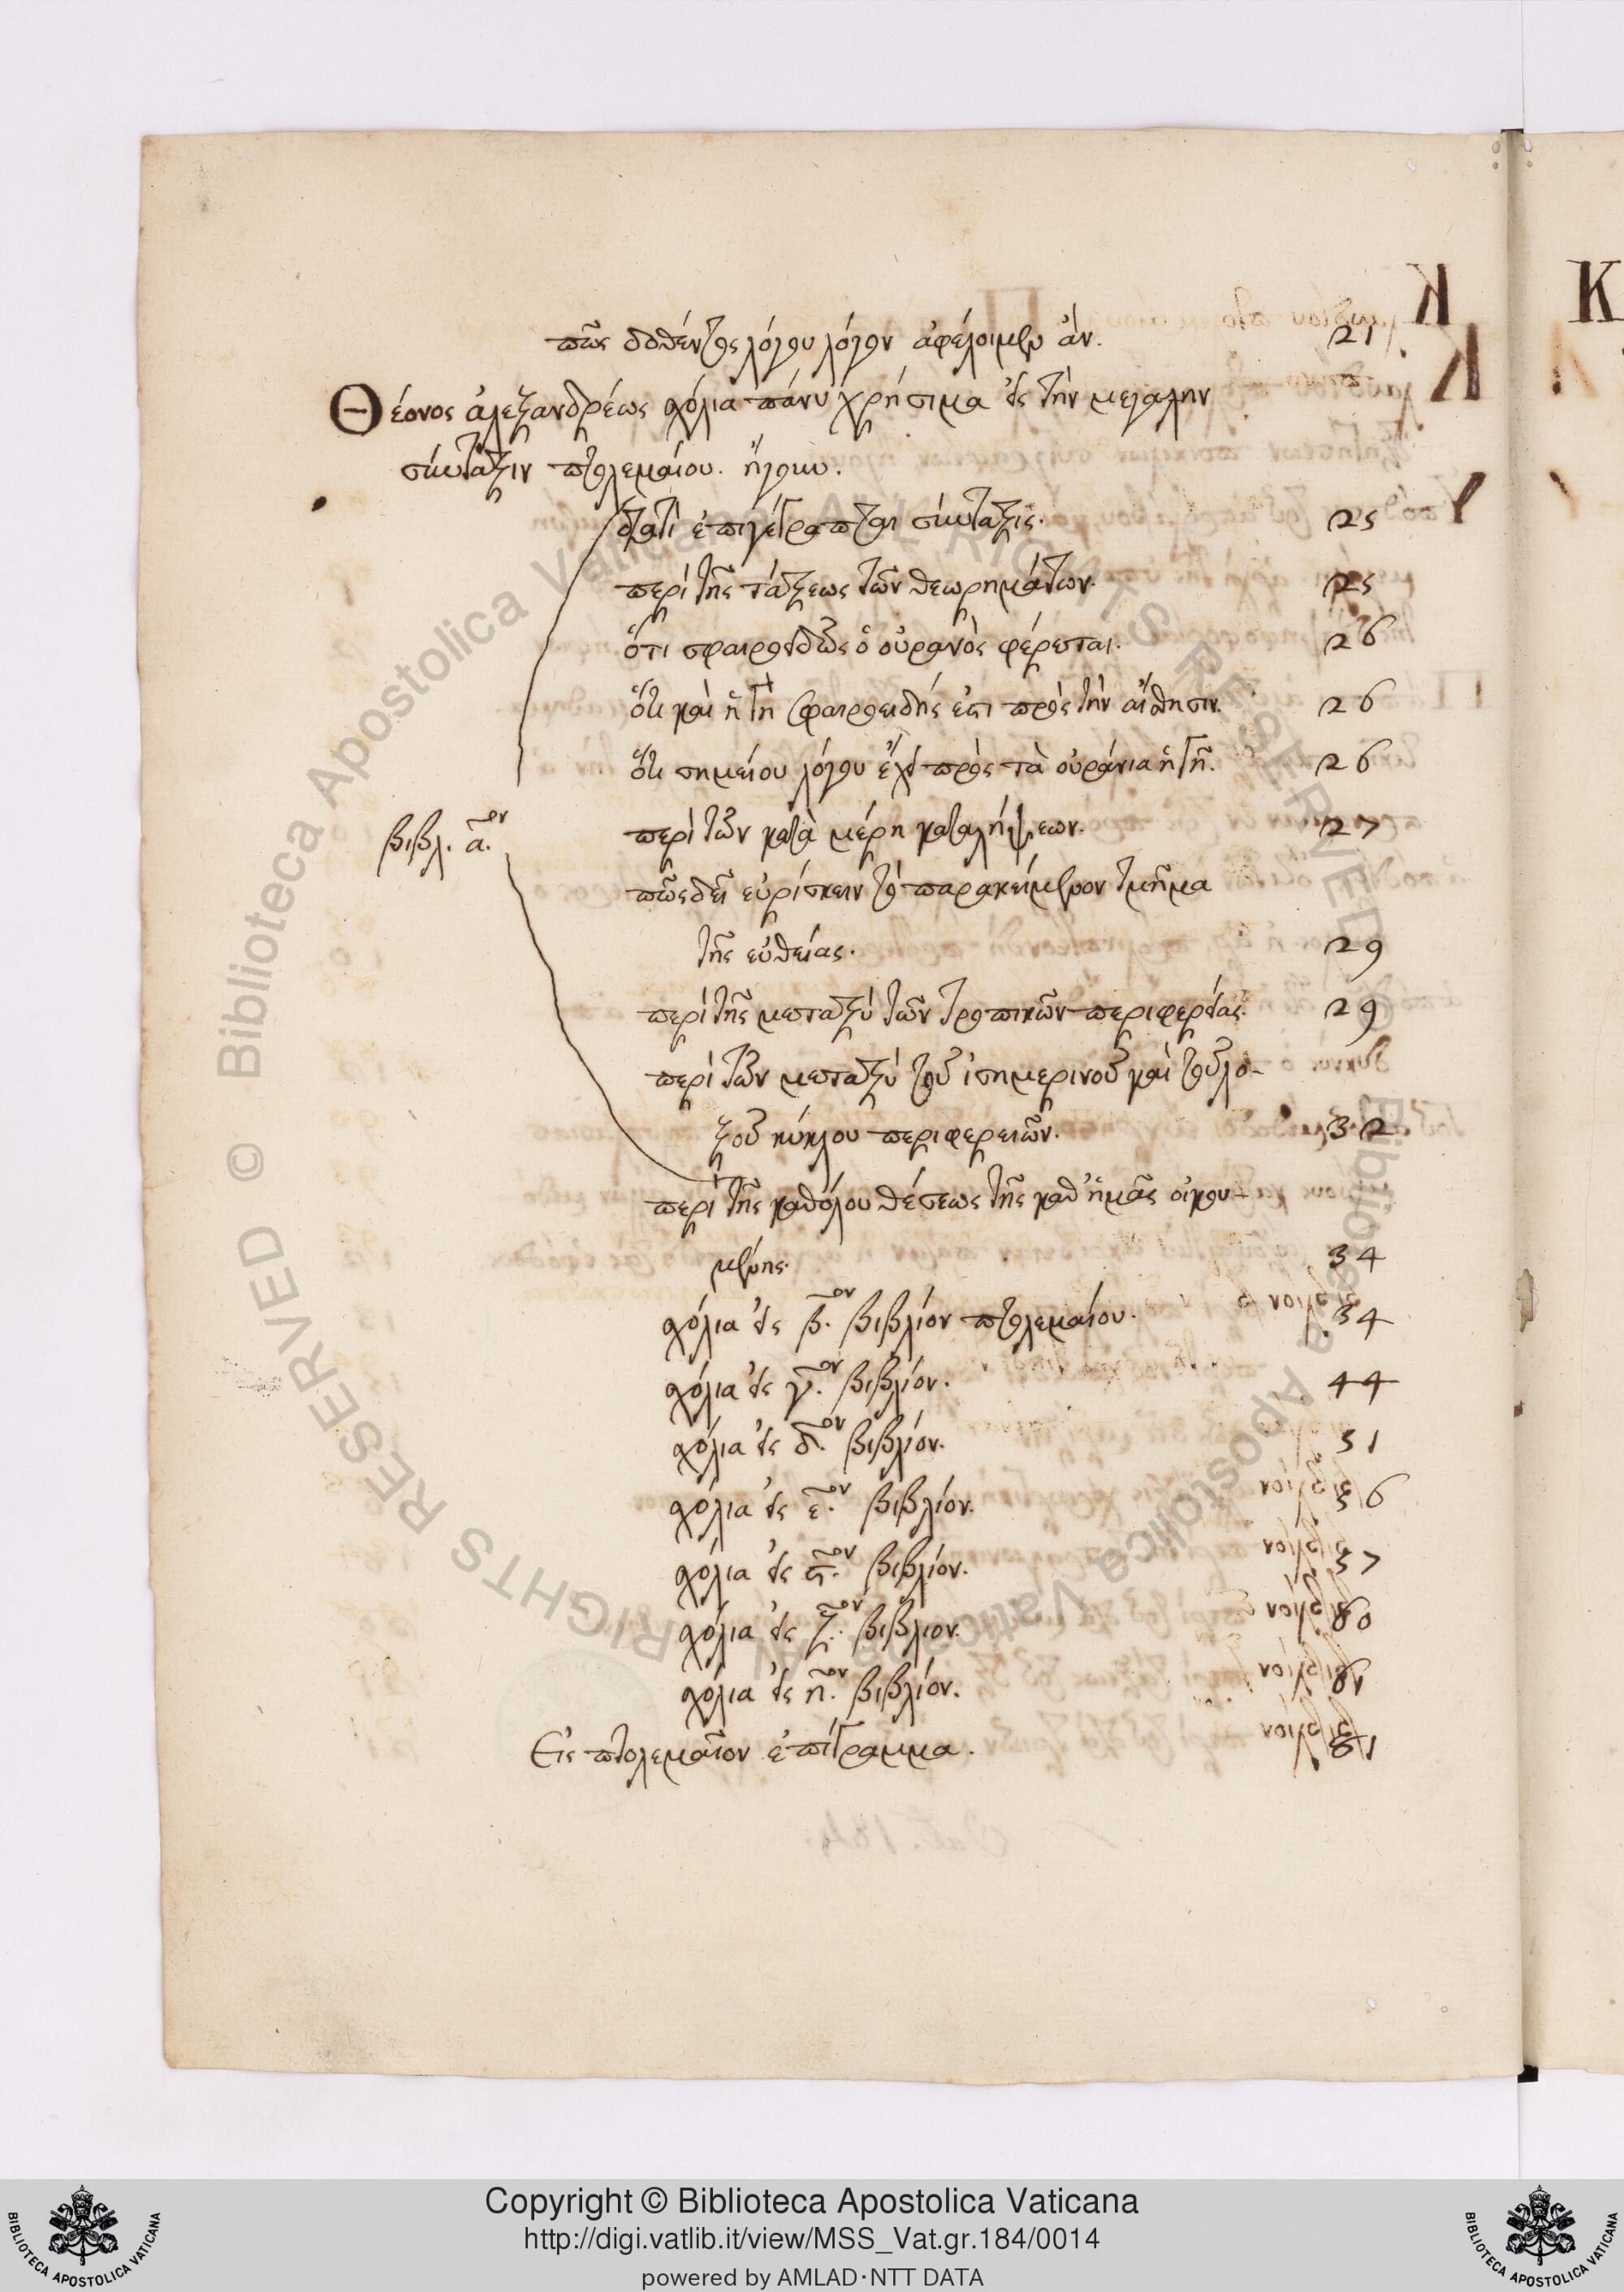 πῶς δοθέντος λόγου λόγον ἀφέλοιμεν ἄν. 21
Θέονος ἀλεξανδρέως σχόλια πάνυ χρήσιμα εἰς τὴν μεγάλην
σύνταξιν πτολεμαίου. ἤγουν.
διατί ἐπιγέγραπται σύνταξις. 25
περὶ τῆς τάξεως τῶν θεωρημάτων. 25
ὅτι σφαιροειδῶς ὁ οὐρανὸς φέρεται. 26
ὅτι καὶ ἡ γῆ σφαιροειδής ἐστι πρὸς τὴν αἴσθησιν. 26
ὅτι σημείου λόγον ἔχει πρὸς τὰ οὐράνια ἡ γῆ. 26
βιβλ. α.ον
περὶ τῶν κατὰ μέρη καταλήψεων. 27
πῶς δεῖ εὑρίσκειν τὸ παρακείμενον τμῆμα
τῆς εὐθείας. 29
περὶ τῆς μεταξὺ τῶν τροπικῶν περιφερείας. 29
περὶ τῶν μεταξὺ τοῦ ἰσημερινοῦ καὶ τοῦ λο-
ξοῦ κύκλου περιφερειῶν. 32
περὶ τῆς καθόλου θέσεως τῆς καθ' ἡμᾶς οἰκου-
μένης. 34
σχόλια εἰς β.ον βιβλίον πτολεμαίου. 34
σχόλια εἰς γ.ον βιβλίον. 44
σχόλια εἰς δ.ον βιβλίον. 51
σχόλια εἰς ε.ον βιβλίον. 56
σχόλια εἰς ϛ.ον βιβλίον. 57
σχόλια εἰς ζ.ον βιβλίον. 60
σχόλια εἰς η.ον βιβλίον. 61
Εἰς πτολεμαῖον ἐπίγραμμα. 81
K
© Biblioteca Apostolica Vaticana ALL RIGHTS RESERVED
Copyright © Biblioteca Apostolica Vaticana
http://digi.vatlib.it/view/MSS_Vat.gr.184/0014
powered by AMLAD·NTT DATA
BIBLIOTECA APOSTOLICA VATICANA
BIBLIOTECA APOSTOLICA VATICANA